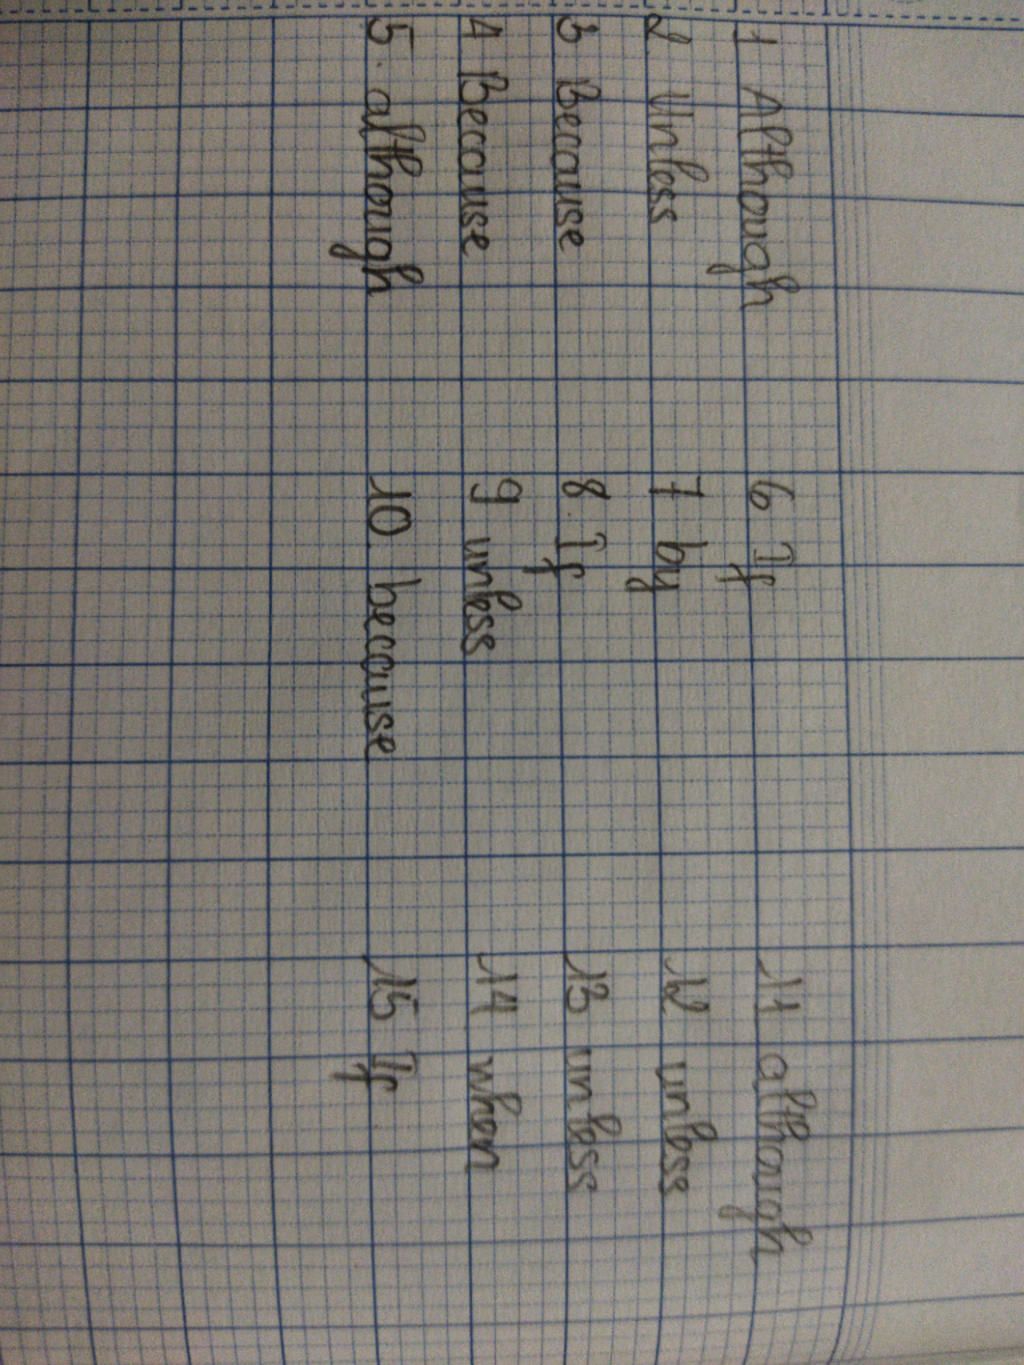 1 Although 6 If 11 although
2 Unless 7 by 12 unless
3 Because 8. If 13 unless
4 Because 9 unless 14 when
5. although 10. because 15 If